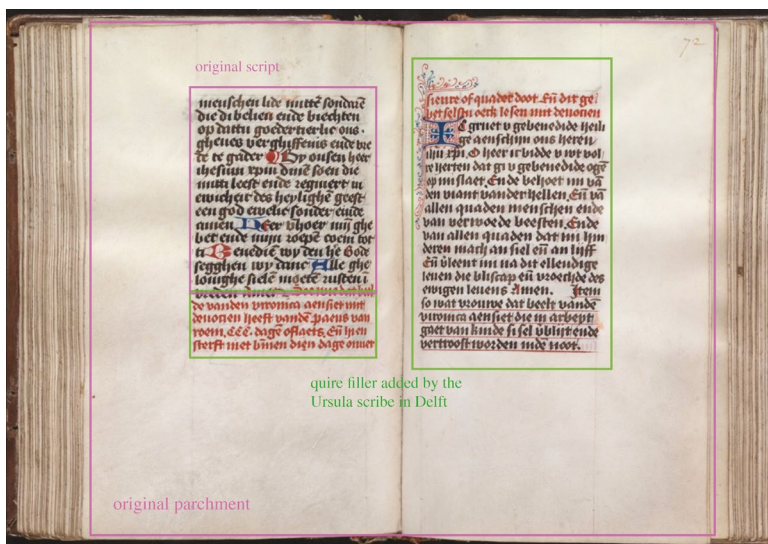 original script
72
menschen lide mitter sondaer
die di belien ende biechten
op dattu goedertierlic ons
ghenes verghiffenis ende vre
de te gader By onsen heer
ihesum xpm dinen soen die
mitti leeft ende regniert in
ewicheit des heylighe geest
een god ewelic sonder einde
amen Heer vhoer mijn ghe
bet ende mijn roepen coem tot
ti Benedien wy den he God
segghen wy danc Alle ghe
lovighe sielen moeten rusten i
vreden
de vanden vironica aensiet mit
devocien heeft vanden paeus van
roem CCC dagen oflaets Eñ hi en
sterft niet binnen dien dage onuer
sienre of quader doot Eñ dit ge
bet selstu oeck lesen mit devocien
IC gruet v gebenedide heili
ge aenschijn ons heren
ihu xpi O heer ic bidde v wt vol
re herten dat gi v gebenedide ogen
op mi slaet Ende behoet mi van
den viant vander hellen Eñ van
allen quaden menschen ende
van verwoede beesten Ende
van allen quaden dat mi hin
deren mach an siel eñ an lijff
Eñ verleent mi na dit ellendige
leven die bliscap eñ vroechde des
ewigen levens Amen Item
so wat vrouwe dat beelt vande
vironica aensiet die in arbeyt
gaet van kinde si sel verblijt ende
vertroost worden in de noot.
quire filler added by the
Ursula scribe in Delft
original parchment